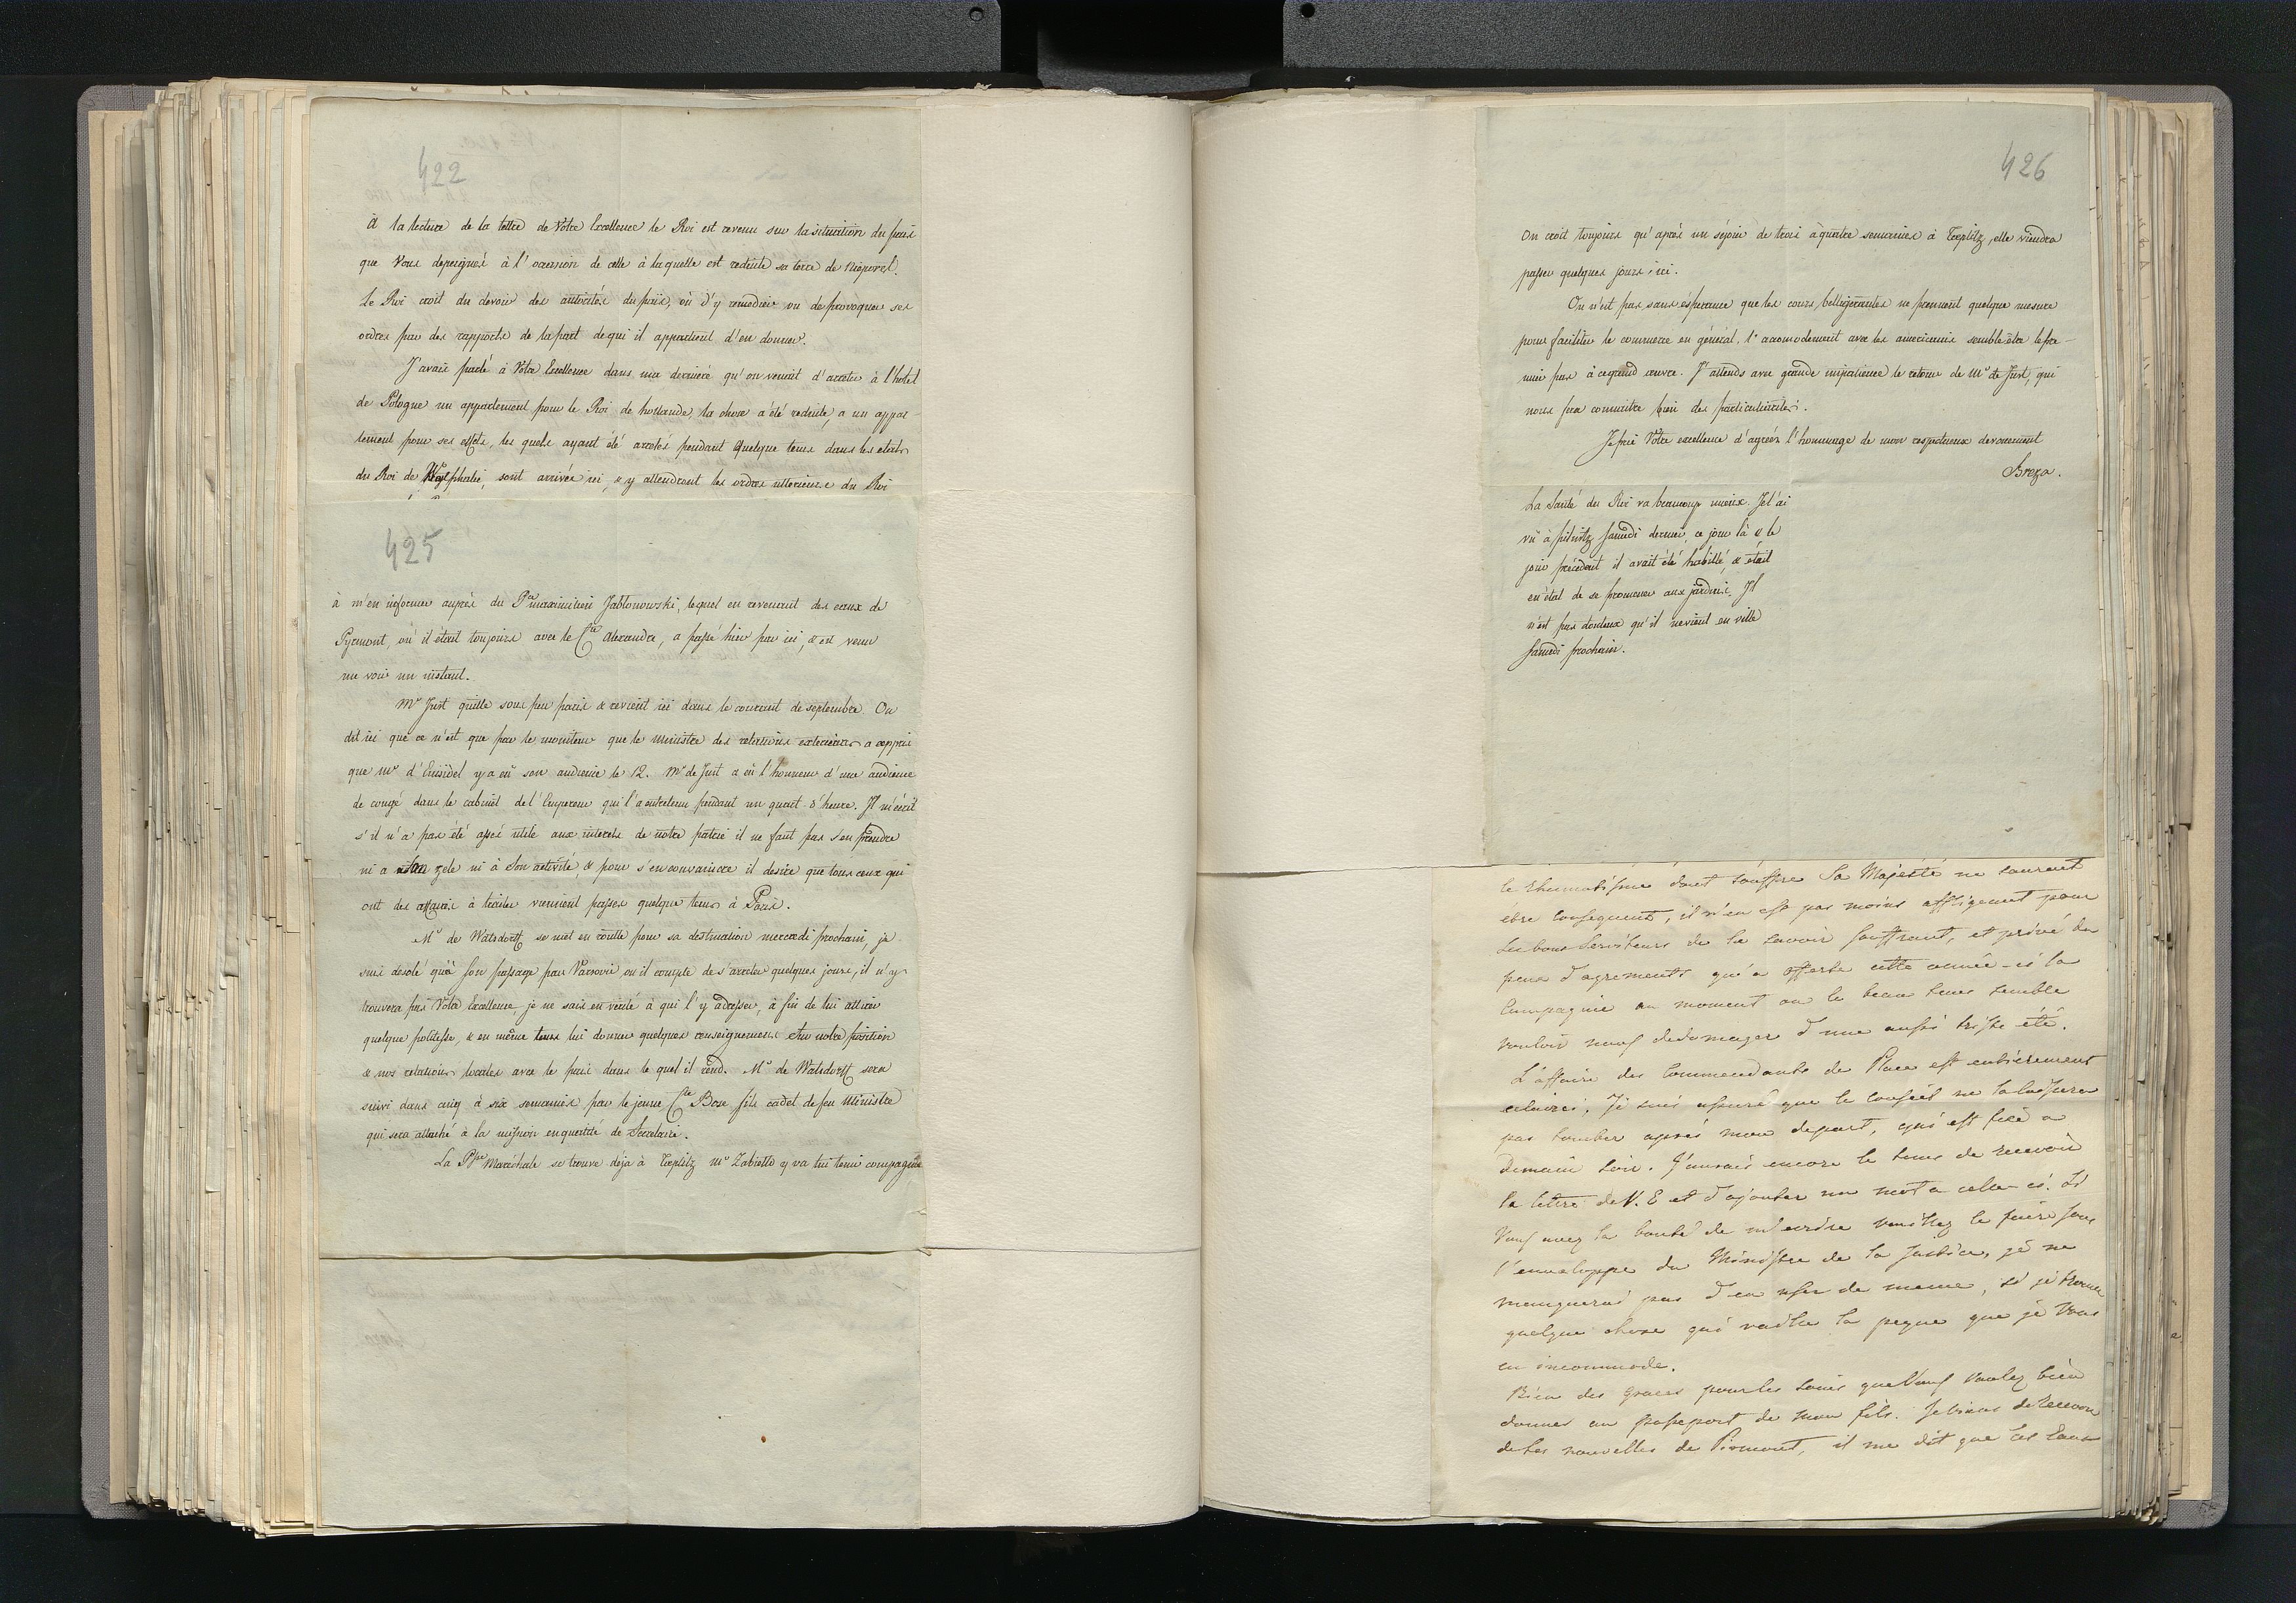 422
à la lecture de la lettre de Votre Excellence le Roi est revenu sur la situation du pais
que Vous depeignés à l'occasion de celle à laquelle est reduite sa terre de Nieporet.
Le Roi croit du devoir des autorités du païs, où d'y remedier ou de provoquer ses
ordres par des rapports de la part de qui il appartient d'en donner.
J'avais parlé à Votre Excellence dans ma derniere qu'on venait d'arreter à l'hotel
de Pologne un appartement pour le Roi de hollande, la chose a été reduite, a un appar-
tement pour ses effets, les quels ayant été arretés pendant quelque tems dans les etats
du Roi de Westphalie, sont arrivés ici, & y attendront les ordres ulterieurs du Roi
425
à m'en informer auprès du Pce maximilien Jablonowski, lequel en revenant des eaux de
Pyrmont, où il était toujours avec le Cte Alexandre, a passé hier par ici, & est venu
me voir un instant.
Mr Just quitte sous peu paris & revient ici dans le courant de septembre. On
dit ici que ce n'est que par le moniteur que le Ministre des relations exterieures a appris
que Mr d'Einsidel y a eû son audience le 12. Mr de Just a eû l'honneur d'une audience
de congé dans le cabinet de l'Empereur qui l'a entretenu pendant un quart d'heure. Il m'écrit
s'il n'a pas été assés utile aux interets de notre patrie il ne faut pas s'en prendre
ni a son zele ni à son activité, & pour s'en convaincre il desire que tous ceux qui
ont des affaires à traiter viennent passer quelque tems à Paris.
Mr de Watsdorff se met en route pour sa destination mercredi prochain, je
suis desolé qu'à son passage par Varsovie ou il compte de s'arreter quelques jours, il n'y
trouvera pas Votre Excellence, je ne sais en verité à qui l'y adresser, à fin de lui attirer
quelque politesse, & en même tems lui donner quelques renseignemens sur notre position
& nos relations locales avec le pais dans le quel il rend. Mr de Watsdorff sera
suivi dans cinq à six semaines par le jeune Cte Bose fils cadet de feu Ministre
qui sera attaché à la mission en qualité de Secretaire.
La Psse Maréchale se trouve déja à Toeplitz Mr Zabiello y va lui tenir compagnie
426
On croit toujours qu'après un séjour de trois à quatre semaines à Toeplitz, elle viendra
passer quelques jours ici.
On n'est pas sans ésperance que les cours belligerantes ne prennent quelque mesure
pour faciliter le commerce en géneral, l'accomodement avec les americains semble être le pre-
mier pas à ce grand œuvre. J'attends avec grande impatience le retour de Mr de Just, qui
nous fera connaitre bien des particularités.
Je prie Votre excellence d'agréer l'hommage de mon respectueux devouement
Breza.
La Santé du Roi va beaucoup mieux. Je l'ai
vû à pilnitz samedi dernier, ce jour là & le
jour précédent il avait été habillé, & était
en état de se promener aux jardins. Il
n'est pas douteux qu'il ne vient en ville
samedi prochain.
le rhumatisme dont souffre Sa Majesté ne sauroit
être consequent, il n'en est pas moins affligeant pour
ses bons serviteurs de le savoir souffrant, et privé du
peu d'agrements qu'a offerte cette année-ci la
Campagne au moment ou le beau tems semble
vouloir nous dedomager d'une aussi triste été.
L'affaire des Commendants de Place est entierement
eclaircie, Je suis assuré que le Conseil ne la laissera
pas tomber après mon depart, qui est fixé a
Demain soir. J'aurais encore le tems de recevoir
la lettre de V. E et d'ajouter un mot a celle-ci. Si
Vous avez la bonté de m'ecrire veuillez le faire sous
l'enveloppe du Ministre de la Justice, je ne
manquerai pas d'en user de meme, si je trouve
quelque chose qui vaille la peyne que je Vous
en incommode.
Bien des graces pour les soins que Vous voulez bien
donner au passeport de mon fils. Je viens de recevoir
de ses nouvelles de Pirmont, il me dit que les Eaux